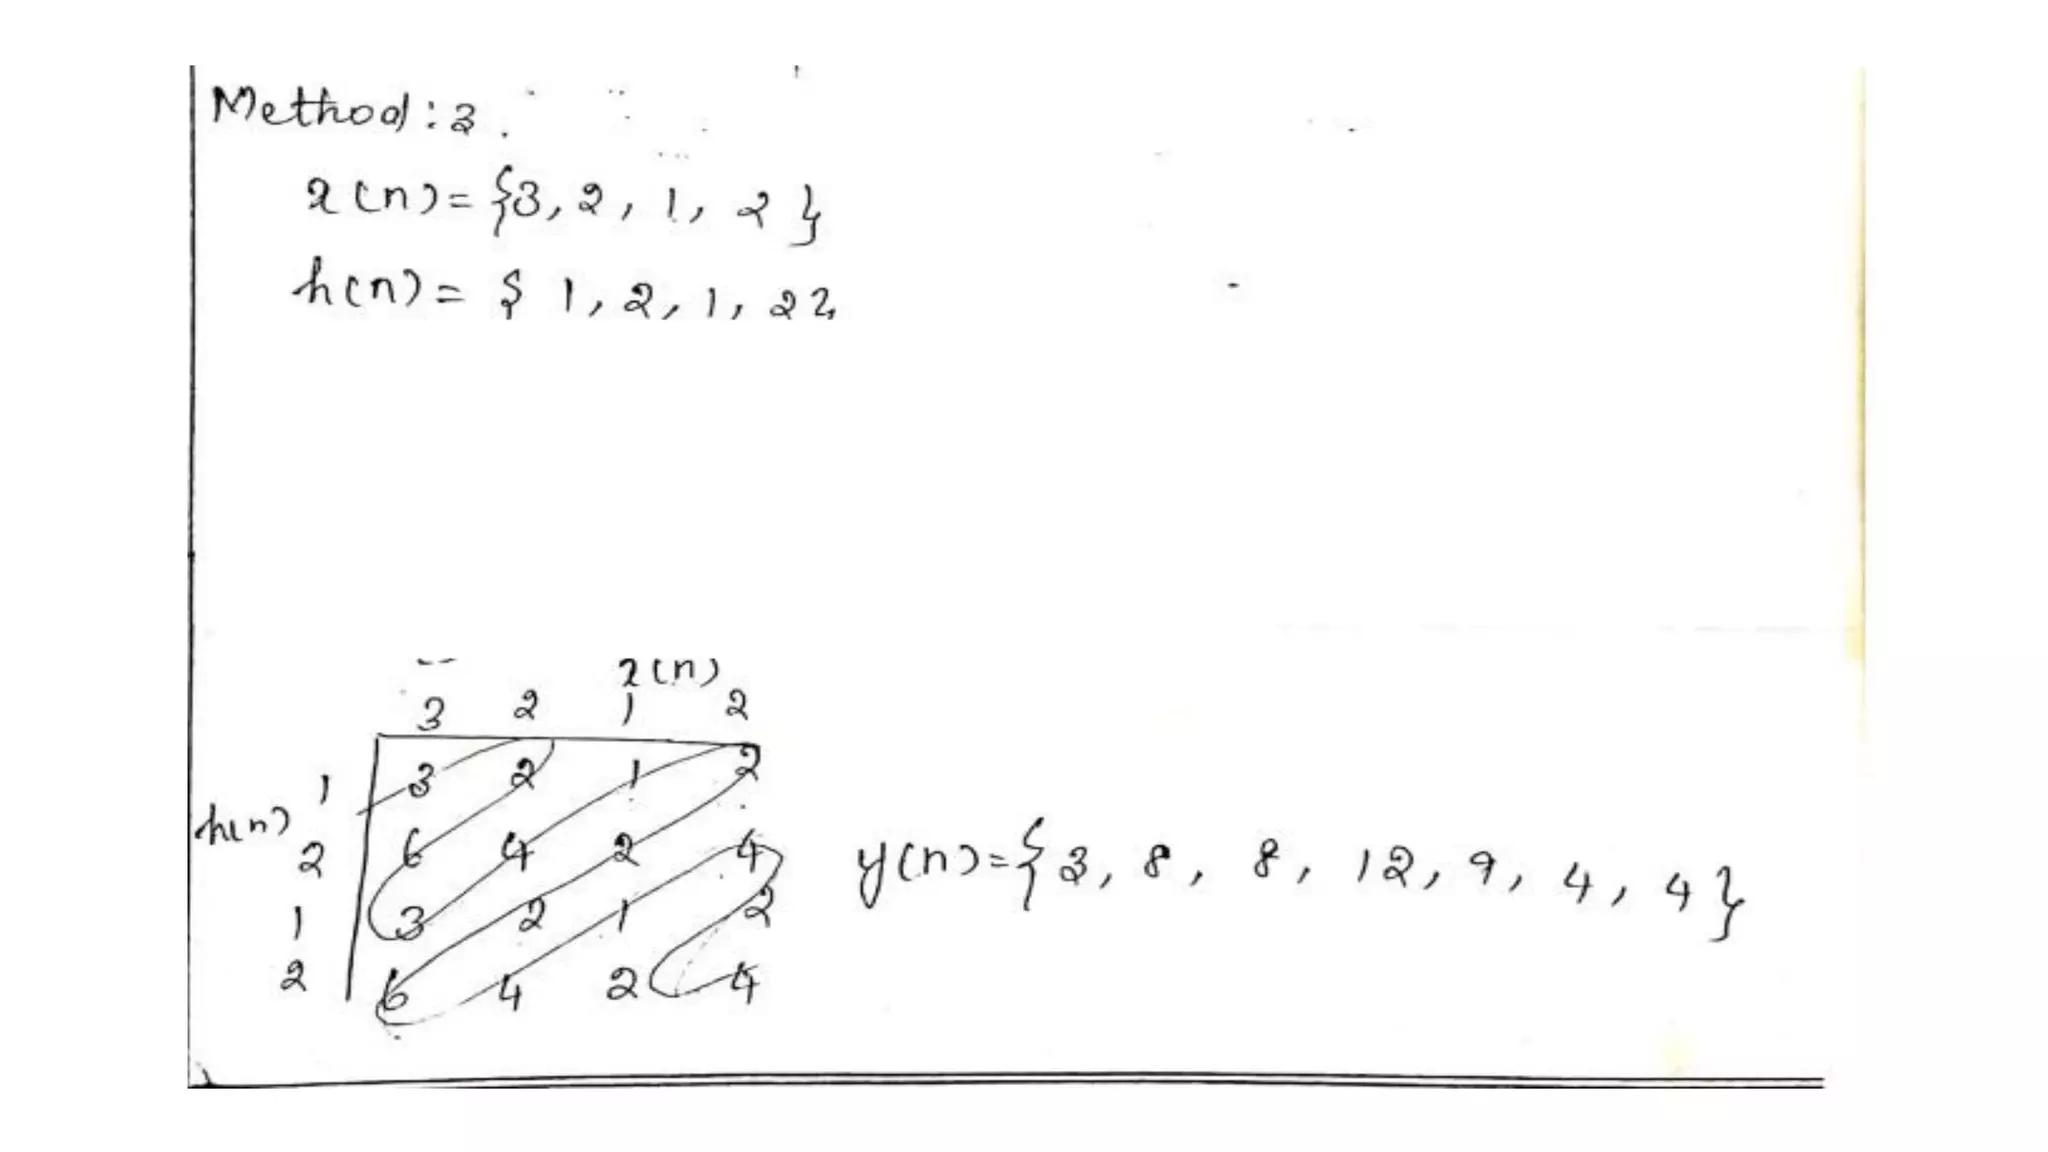 Method: 3.
x(n) = {3, 2, 1, 2}
h(n) = { 1, 2, 1, 2}
x(n)
3 2 1 2
1 3 2 1 2
h(n)
2 6 4 2 4
1 3 2 1 2
2 6 4 2 4
y(n) = {3, 8, 8, 12, 9, 4, 4}